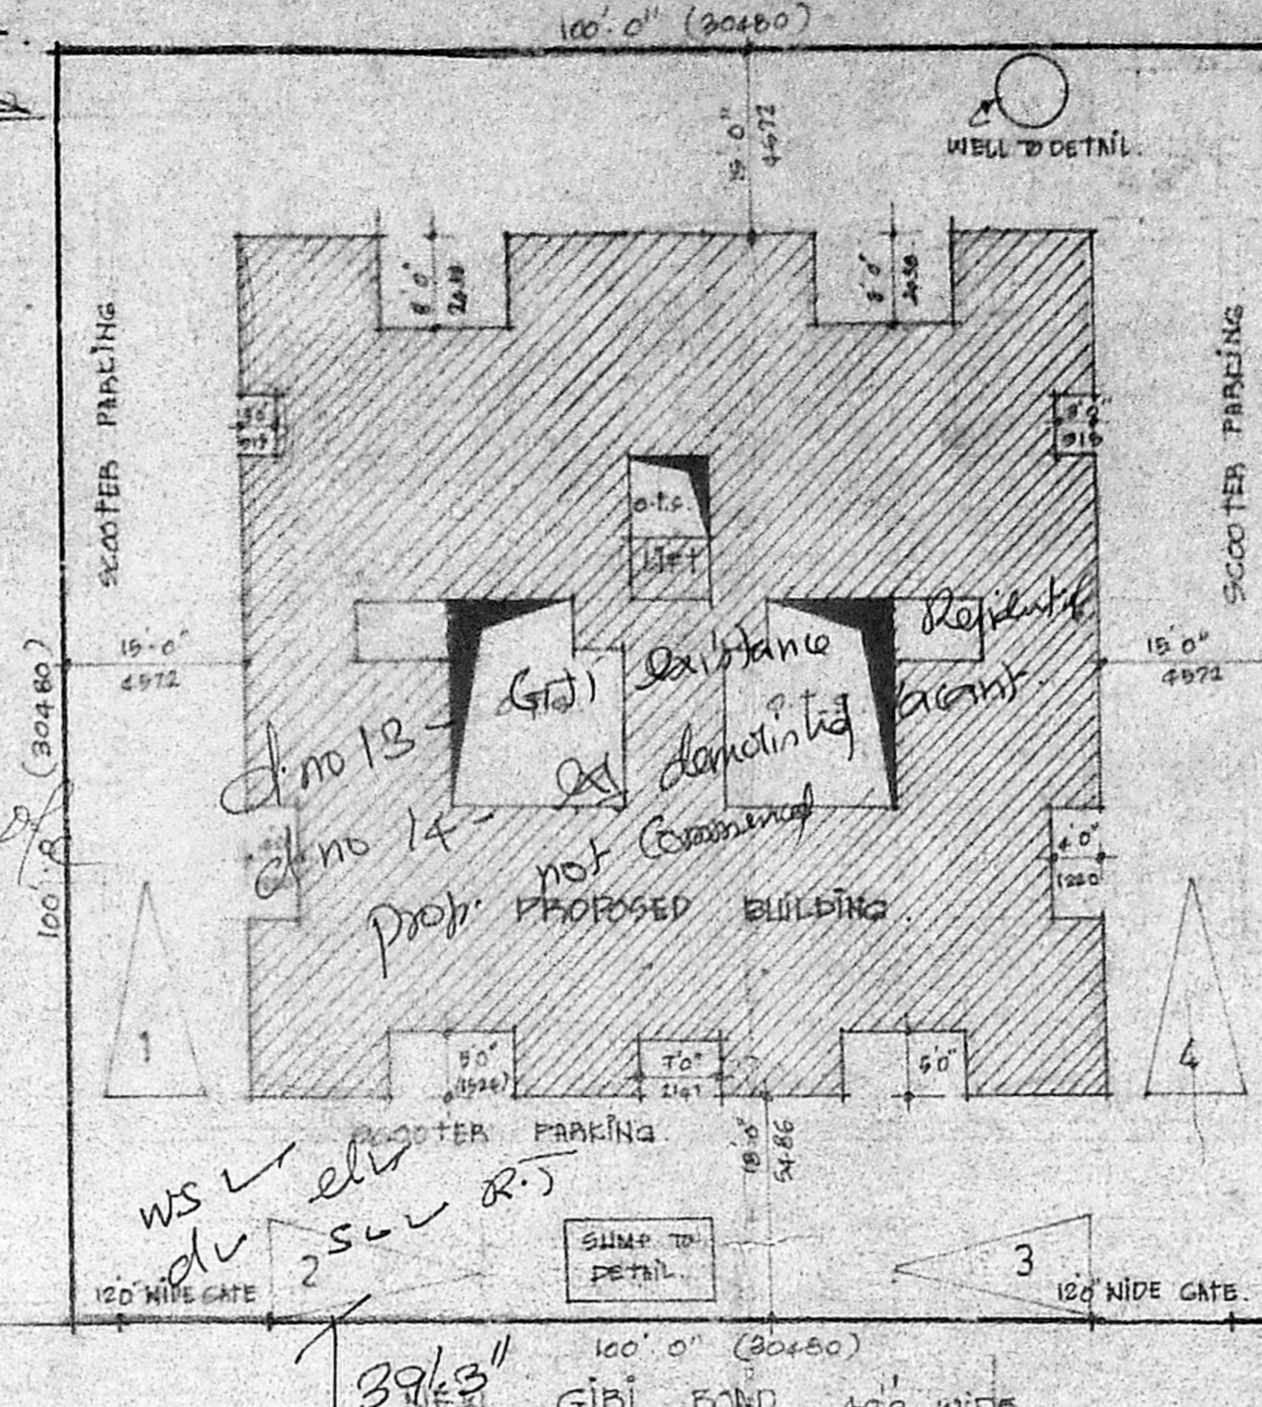 100'-0" (30480)
15'-0"
4572
WELL TO DETAIL.
8'0"
2438
8'0"
2438
SCOOTER PARKING
SCOOTER PARKING
3'0"
915
O.T.S.
LIFT
15'-0"
4572
15'0"
4572
100'-0" (30480)
d.no 13 - existance Residential
d.no 14 - demolished vacant.
prop. not Commenced
PROPOSED BUILDING.
4'0"
1220
1
4
5'0"
(1524)
7'0"
5'0"
SCOOTER PARKING.
18'0"
5486
ws
d
R.T
2
SUMP TO
DETAIL.
3
12'0" WIDE GATE
12'0" WIDE GATE.
100'0" (30480)
39'-3"
ROAD WIDE